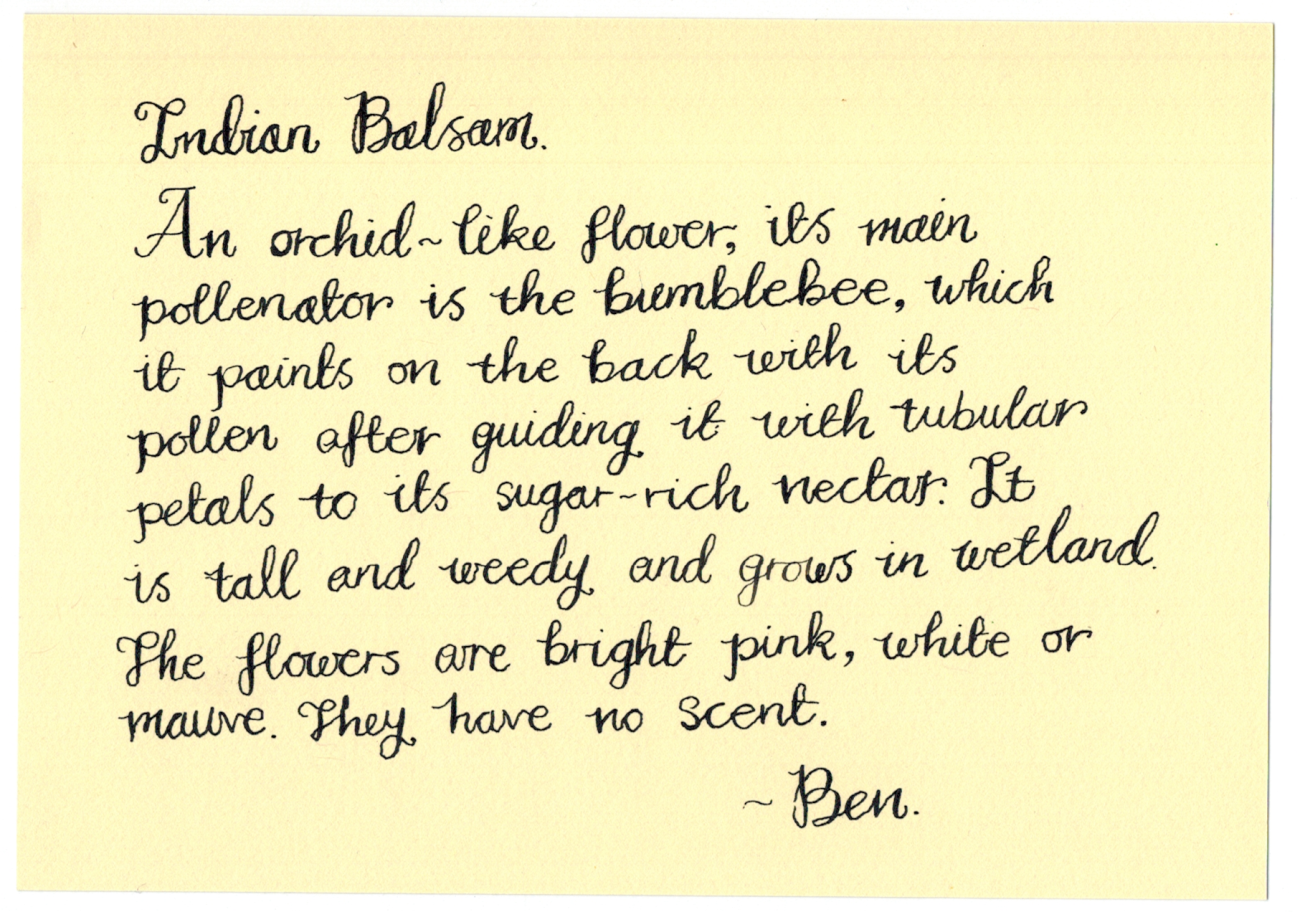 Indian Balsam.
An orchid~like flower, its main
pollenator is the bumblebee, which
it paints on the back with its
pollen after guiding it with tubular
petals to its sugar~rich nectar. It
is tall and weedy and grows in wetland.
The flowers are bright pink, white or
mauve. They have no scent.
~ Ben.